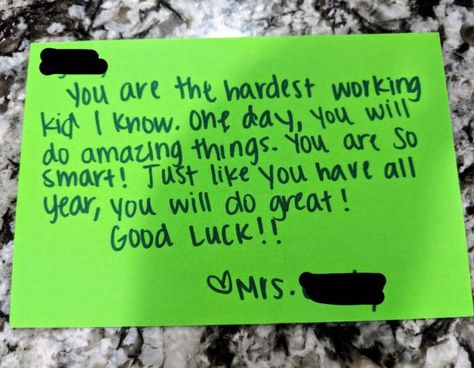 You are the hardest working
kid I know. One day, you will
do amazing things. You are so
smart! Just like you have all
year, you will do great!
Good Luck!!
♡Mrs.